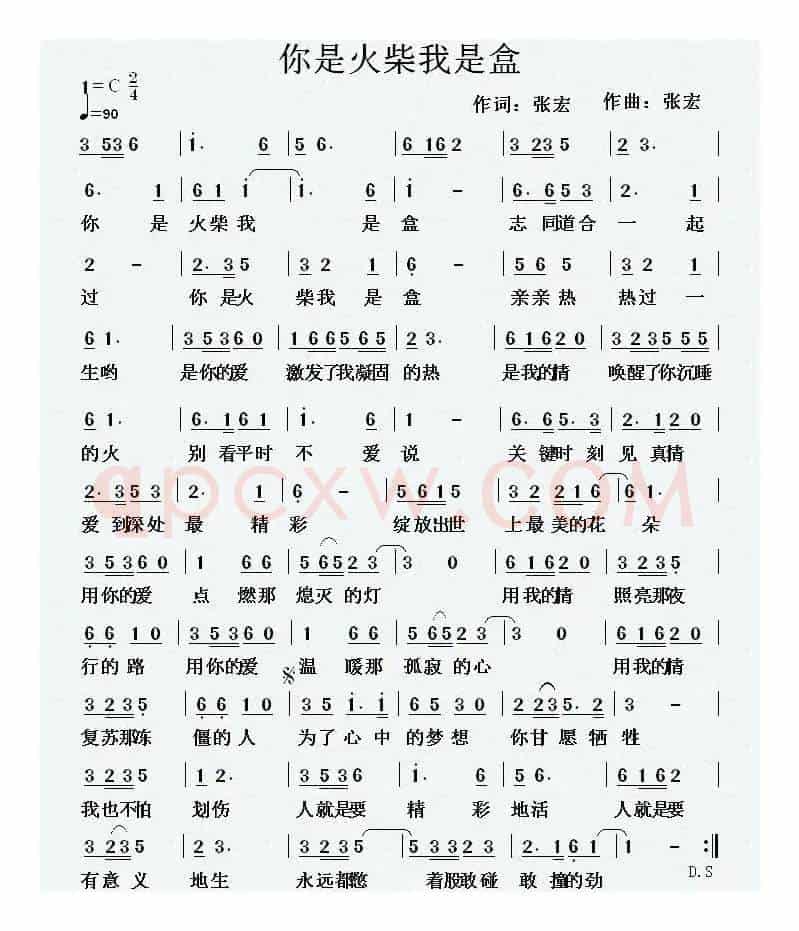 你是火柴我是盒
1=C 2/4
♩=90
作词：张宏 作曲：张宏
3 5 3 6 | i· 6 | 5 6· | 6 1 6 2 | 3 2 3 5 | 2 3·
6· 1 | 6 1 i | i· 6 | i - | 6· 6 5 3 | 2· 1
你 是 火柴 我 是 盒 志 同道合 一 起
2 - | 2· 3 5 | 3 2 1 | 6 - | 5 6 5 | 3 2 1
过 你 是火 柴我 是 盒 亲亲 热 热过 一
6 1· | 3 5 3 6 0 | 1 6 6 5 6 5 | 2 3· | 6 1 6 2 0 | 3 2 3 5 5 5
生哟 是你的爱 激发了我凝固 的热 是我的情 唤醒了你沉睡
6 1· | 6· 1 6 1 | i· 6 | 1 - | 6· 6 5· 3 | 2· 1 2 0
的火 别 看平时 不 爱 说 关 键时 刻 见 真情
2· 3 5 3 | 2· 1 | 6 - | 5 6 1 5 | 3 2 2 1 6 | 6 1·
爱 到深处 最 精 彩 绽放出世 上最 美的花 朵
3 5 3 6 0 | 1 6 6 | 5 6 5 2 3 | 3 0 | 6 1 6 2 0 | 3 2 3 5
用你的爱 点 燃那 熄灭 的灯 用我的情 照亮那夜
6 6 1 0 | 3 5 3 6 0 | 1 6 6 | 5 6 5 2 3 | 3 0 | 6 1 6 2 0
行的 路 用你的爱 温 暖那 孤寂 的心 用我的情
3 2 3 5 | 6 6 1 0 | 3 5 i· i | 6 5 3 0 | 2 2 3 5· 2 | 3 -
复苏那冻 僵的 人 为了 心 中 的梦 想 你甘 愿 牺 牲
3 2 3 5 | 1 2· | 3 5 3 6 | i· 6 | 5 6· | 6 1 6 2
我也不怕 划伤 人就是要 精 彩 地活 人就是要
3 2 3 5 | 2 2· | 3 5 3 5 | 5 3 3 2 3 | 2· 1 6 1 | 1 - :||
有意 义 地生 永远都憋 着股敢碰 敢 撞的劲
D.S
qpcxw.COM